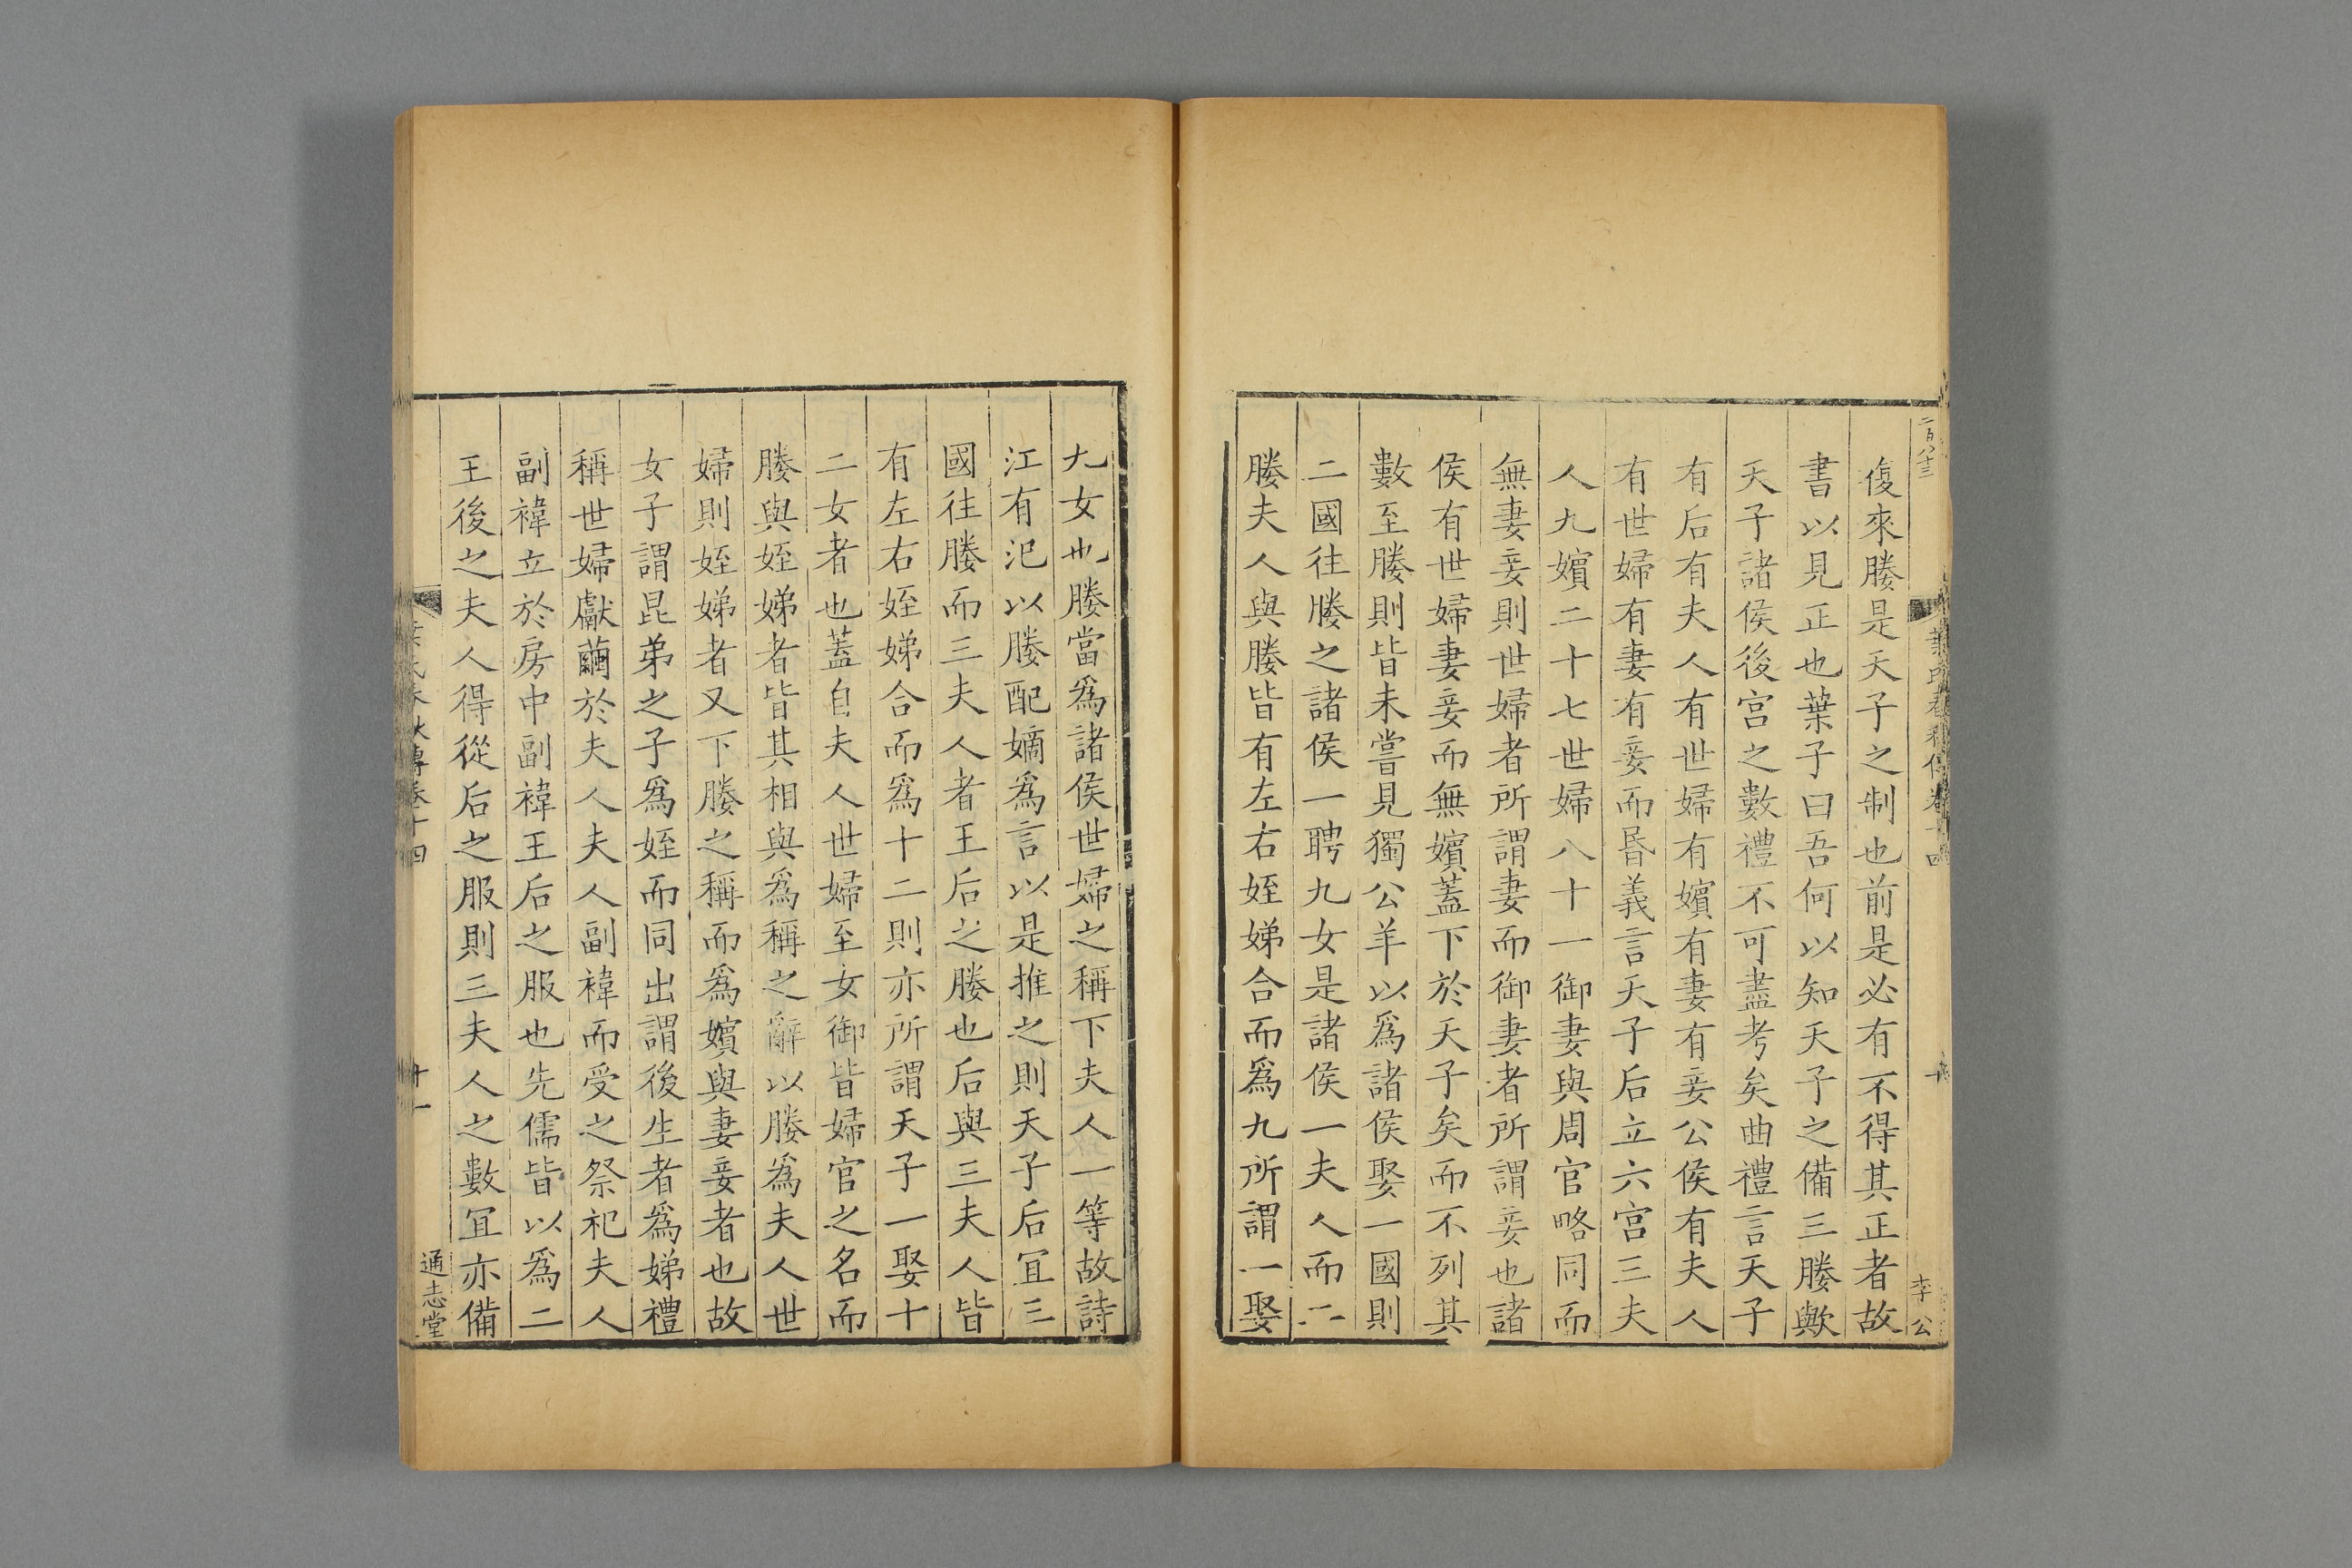 二百八十三
葉氏春秋傳卷十四
十
李公
復來媵是天子之制也前是必有不得其正者故
書以見正也葉子曰吾何以知天子之備三媵歟
天子諸侯後宮之數禮不可盡考矣曲禮言天子
有后有夫人有世婦有嬪有妻有妾公侯有夫人
有世婦有妻有妾而昬義言天子后立六宮三夫
人九嬪二十七世婦八十一御妻與周官略同而
無妻妾則世婦者所謂妻而御妻者所謂妾也諸
侯有世婦妻妾而無嬪蓋下於天子矣而不列其
數至媵則皆未嘗見獨公羊以爲諸侯娶一國則
二國往媵之諸侯一聘九女是諸侯一夫人而二
媵夫人與媵皆有左右姪娣合而爲九所謂一娶
九女也媵當爲諸侯世婦之稱下夫人一等故詩
江有汜以媵配嫡爲言以是推之則天子后宜三
國往媵而三夫人者王后之媵也后與三夫人皆
有左右姪娣合而爲十二則亦所謂天子一娶十
二女者也蓋自夫人世婦至女御皆婦官之名而
媵與姪娣者皆其相與爲稱之辭以媵爲夫人世
婦則姪娣者又下媵之稱而爲嬪與妻妾者也故
女子謂昆弟之子爲姪而同出謂後生者爲娣禮
稱世婦獻繭於夫人夫人副褘而受之祭祀夫人
副褘立於房中副褘王后之服也先儒皆以爲二
王後之夫人得從后之服則三夫人之數宜亦備
葉氏春秋傳卷十四
十一
通志堂